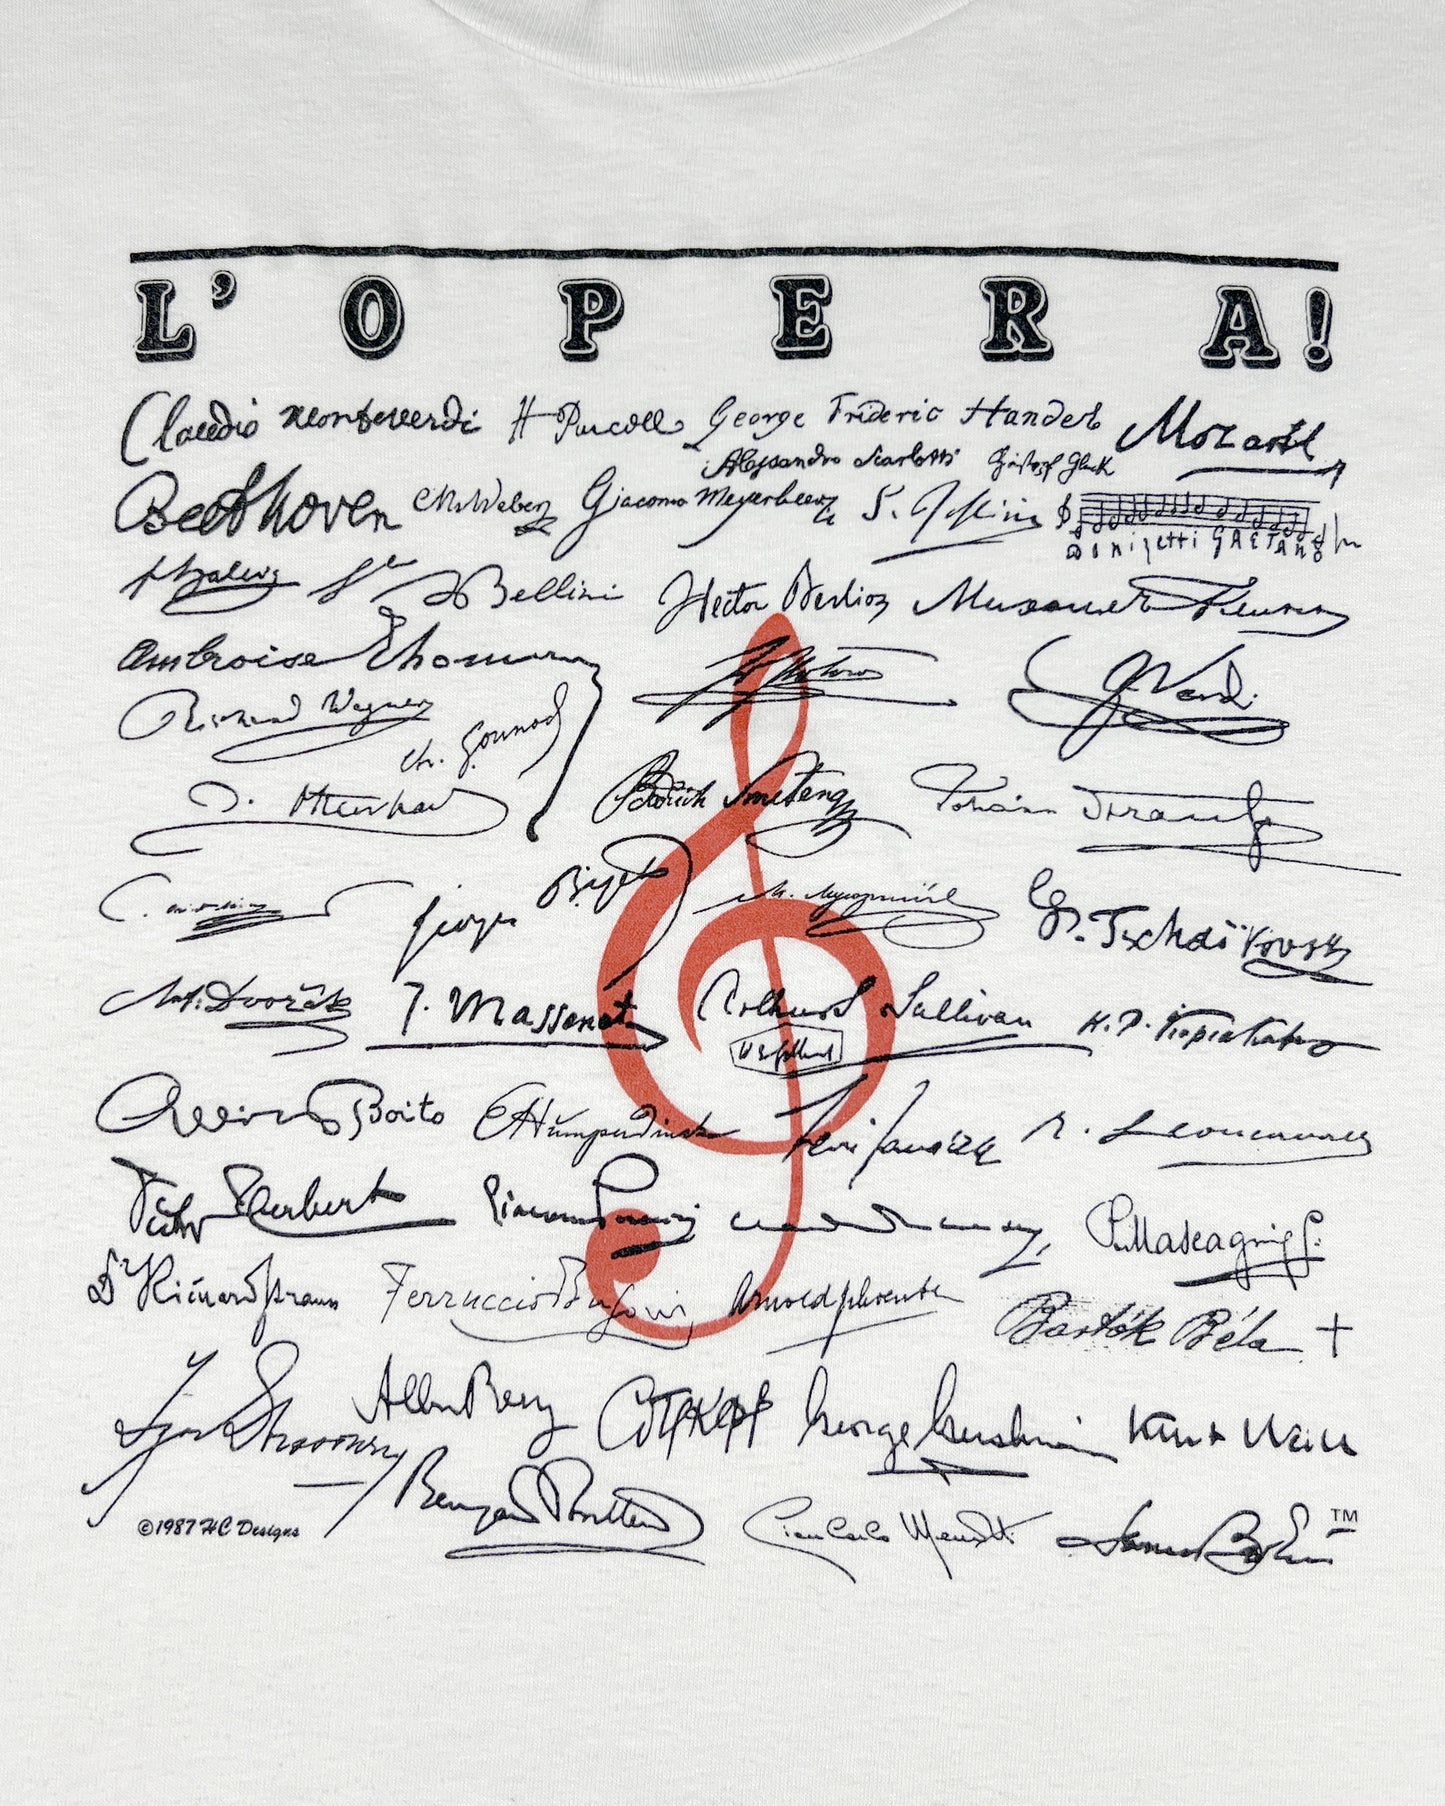 L'OPERA!
Claudio Monteverdi H Purcell George Frideric Handel Mozart
Alessandro Scarlatti Gluck
Beethoven CMvWeber Giacomo Meyerbeer G.
Donizetti GAETANO
Bellini Hector Berlioz
Ambroise Thomas G. Verdi
Richard Wagner Ch. Gounod
J. Offenbach Bedřich Smetana Johann Strauss
C. Georges Bizet M. P. Tschaïkovsky
Ant. Dvořák J. Massenet Arthur S Sullivan
W S Gilbert
Arrigo Boito E Humperdinck Leoš Janáček R. Leoncavallo
Victor Herbert Giacomo Puccini P. Mascagni
Dr Richard Strauss Ferruccio Busoni Arnold Schoenberg Bartók Béla +
Igor Strawinsky Alban Berg George Gershwin Kurt Weill
Benjamin Britten Gian Carlo Menotti TM
©1987 HC Designs